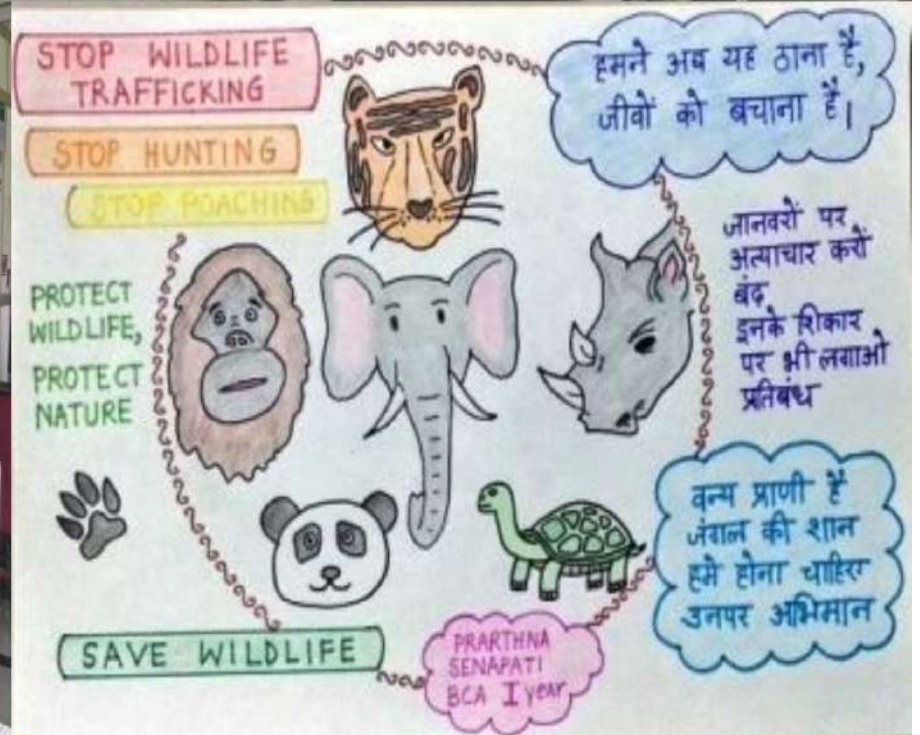 STOP WILDLIFE
TRAFFICKING
STOP HUNTING
STOP POACHING
PROTECT
WILDLIFE,
PROTECT
NATURE
हमने अब यह ठाना है,
जीवों को बचाना है।
जानवरों पर
अत्याचार करों
बंद,
इनके शिकार
पर भी लगाओ
प्रतिबंध
वन्य प्राणी है
जंगल की शान
हमे होना चाहिए
उनपर अभिमान
SAVE WILDLIFE
PRARTHNA
SENAPATI
BCA I year